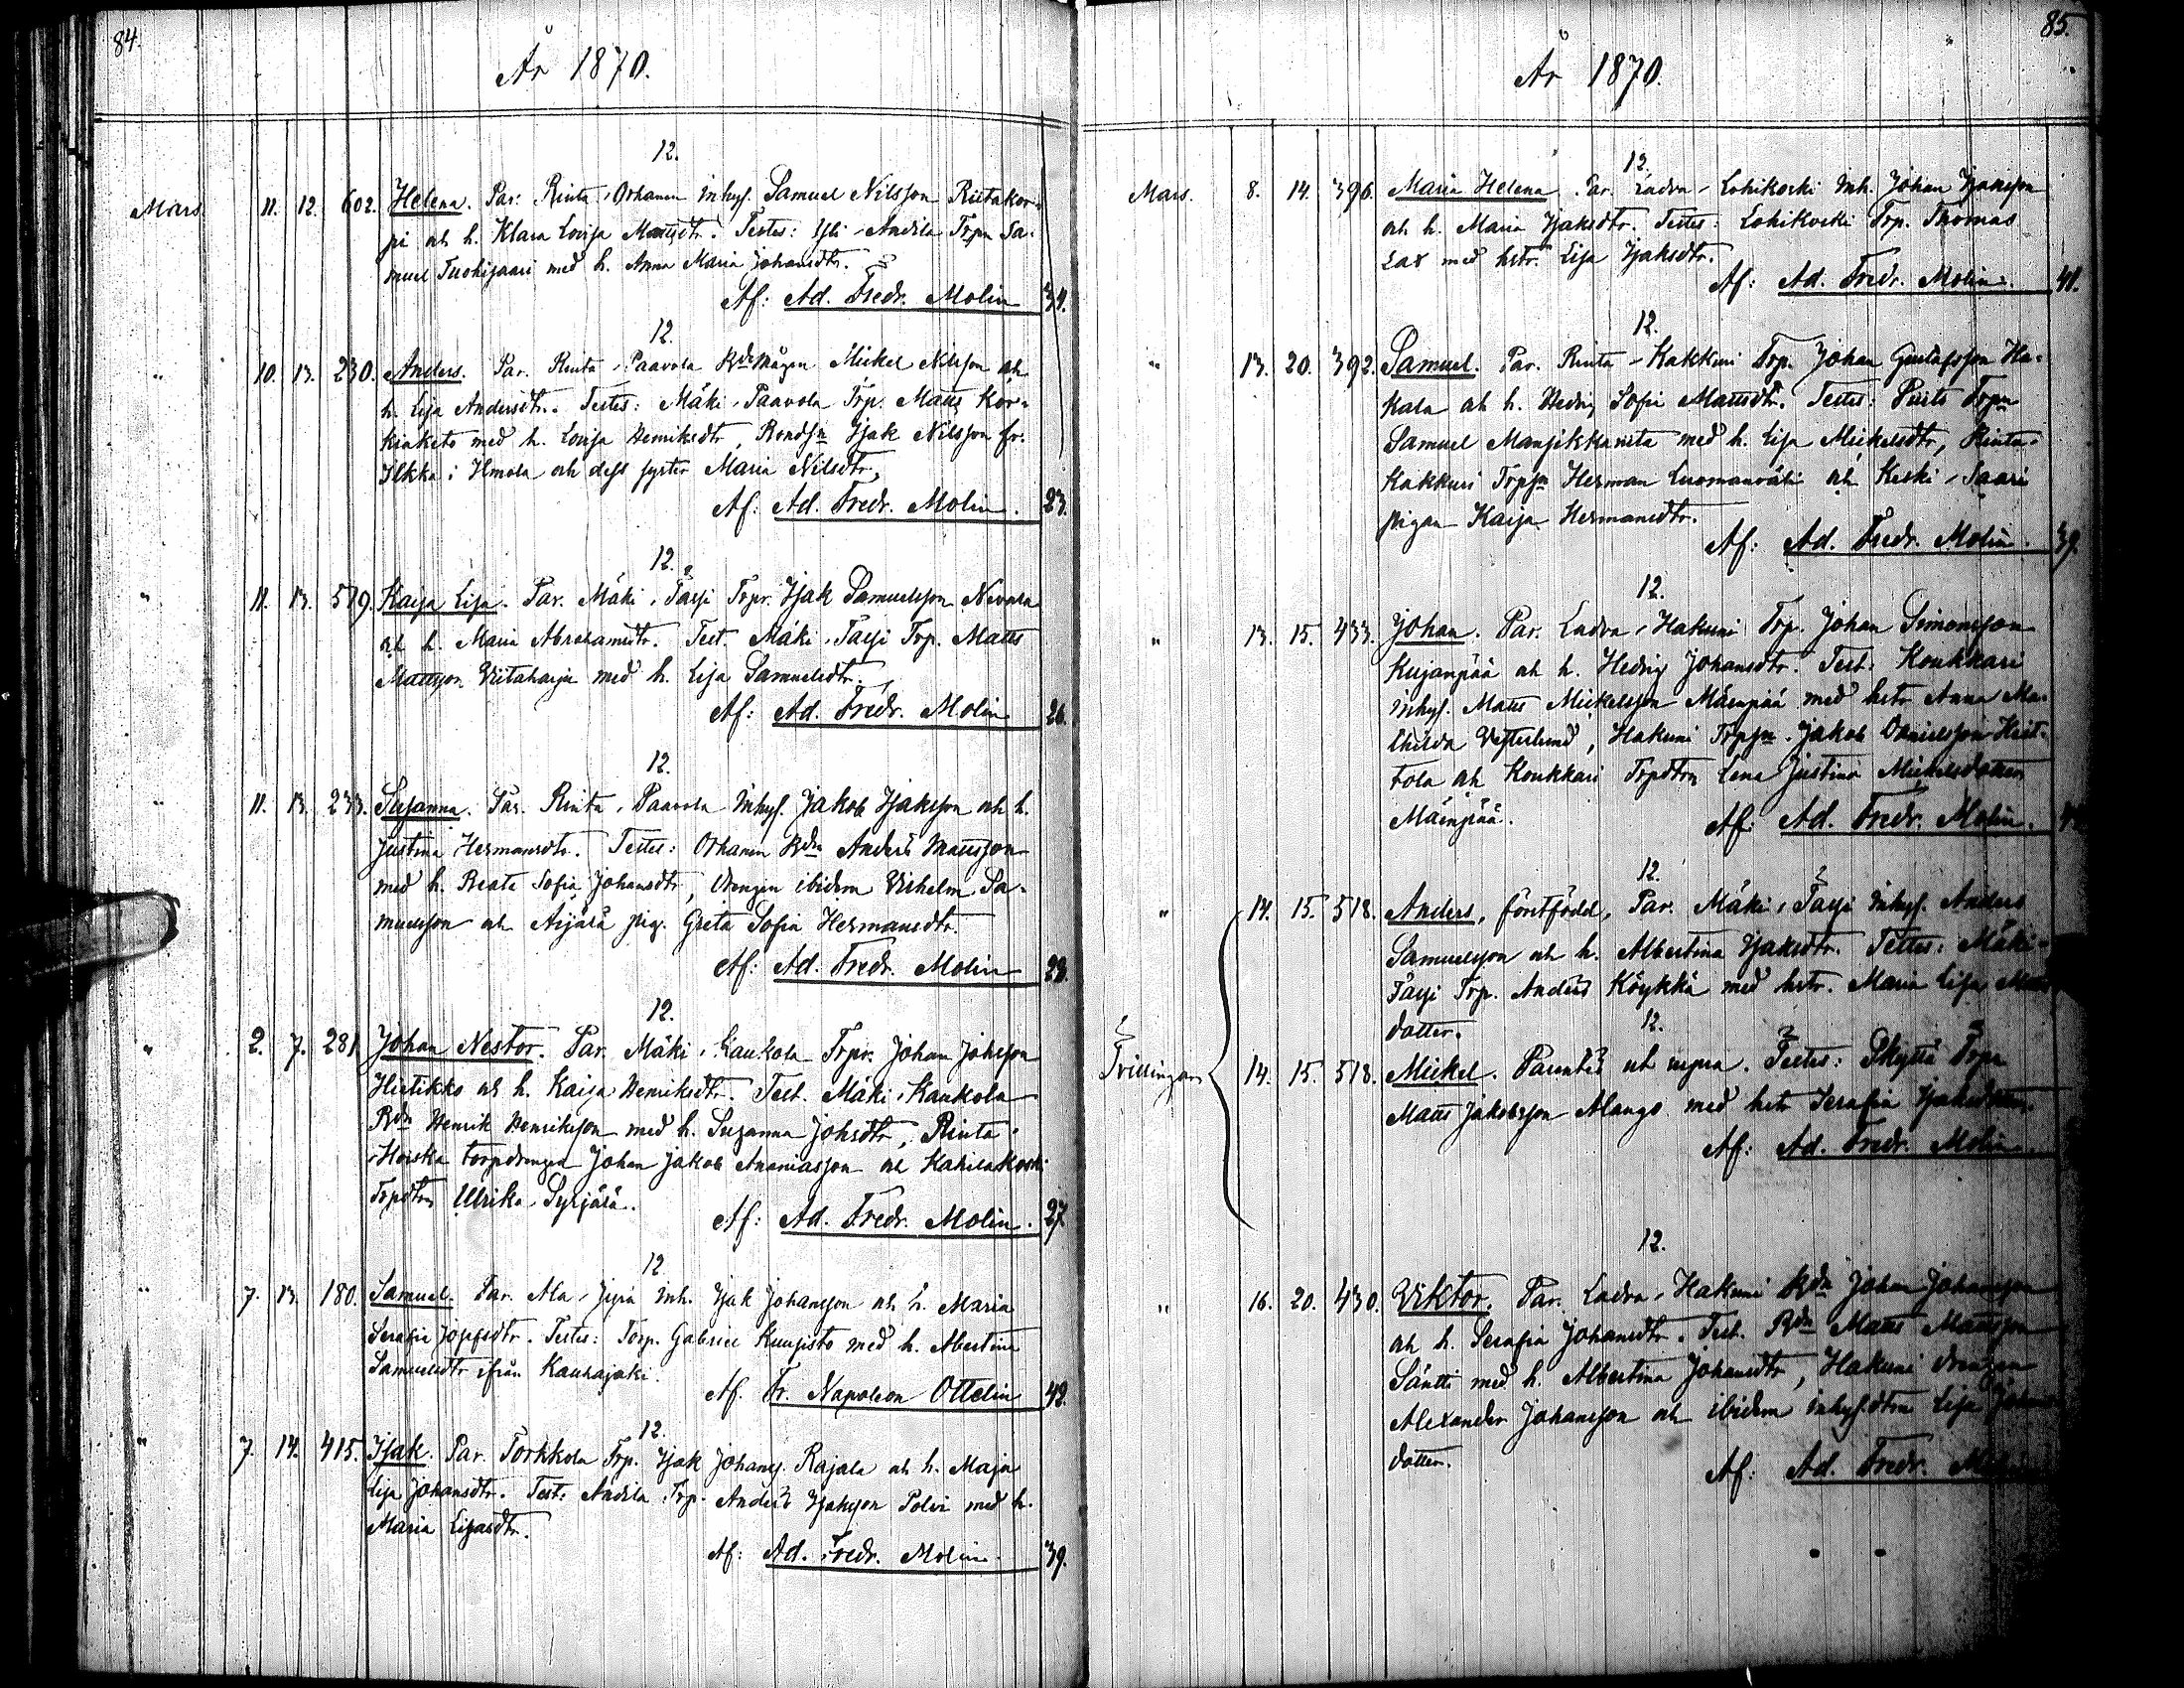 84.
År 1870.
12.
Mars 11. 12. 602. Helena. Par. Rinta-Orhanen Inhys. Samuel Nilsson Riitakor-
pi och h. Klara Lovisa Mattsdtr. Testes: Yli-Andila Trpn Sa-
muel Tuohisaari med h. Anna Maria Johansdtr.
Af: Ad. Fredr. Molin 34.
12.
" 10. 13. 230. Anders. Par. Rinta-Paavola Bdemågen Mickel Nilsson och
h. Lisa Andersdtr. Testes: Mäki-Paavola Trp. Matts Kor-
kiakoto med h. Lovisa Henriksdtr, Bondsn Isak Nilsson fr.
Ilkka i Ilmola och dess syster Maria Nilsdtr,
Af: Ad. Fredr. Molin. 23.
12.
" 11. 13. 519. Kaisa Lisa. Par. Mäki-Passi Trpr. Isak Samuelsson Nevala
och h. Maria Abrahamsdtr. Test. Mäki-Passi Trp. Matts
Mattsson Viitaharju med h. Lisa Samuelsdtr.
Af: Ad. Fredr. Molin 26.
12.
" 11. 13. 233. Susanna. Par. Rinta-Paavola Inhys. Jakob Isaksson och h.
Justina Hermansdtr. Testes: Orhanen Bdn Anders Mattsson
med h. Beata Sofia Johansdtr, Drengen ibidem Vilhelm Sa-
muelsson och Äijälä pig. Greta Sofia Hermansdtr.
Af: Ad. Fredr. Molin 28.
12.
" 2. 7. 281 Johan Nestor. Par. Mäki-Kaukola Trpr. Johan Johsson
Hietikko och h. Kaisa Henriksdtr. Test. Mäki-Kaukola
Bdn Henrik Henriksson med h. Susanna Johsdtr, Rinta-
Hoiska torpdrengen Johan Jakob Ananiasson och Kahilakoski
Trpdtrn Ulrika Syrjälä.
Af: Ad. Fredr. Molin. 27
12
" 7. 13. 180. Samuel. Par. Ala-Jyrä Inh. Isak Johansson och h. Maria
Serafia Josefsdtr. Testes: Torp. Gabriel Kuusisto med h. Albertina
Samuelsdtr ifrån Kauhajoki.
Af. Fr. Napoleon Ottelin 42.
12.
" 7. 14. 415. Isak. Par. Torkkola Trp. Isak Johanss. Rajala och h. Maja
Lisa Johansdtr. Test: Andila Trp. Anders Isaksson Polvi med h.
Maria Lisasdtr.
Af: Ad. Fredr. Molin. 39.
85.
År 1870.
12.
Mars. 8. 14. 396. Maria Helena. Par. Ladva-Lohikoski Inh. Johan Isaksson
och h. Maria Isaksdtr. Testes: Lohikoski Trp. Thomas
Lax med hstr. Lisa Isaksdtr.
Af: Ad. Fredr. Molin. 41.
12.
" 13. 20. 392. Samuel. Par. Rinta-Kakkuri Trp. Johan Gustafsson Ha-
kala och h. Hedvig Sofia Mattsdtr. Testes: Trpn
Samuel Mansikkaniita med h. Lisa Mickelsdtr, Rinta-
Kakkuri Trpsn Herman Luomanväli och Keski-Saari
pigan Kaisa Hermansdtr.
Af: Ad. Fredr. Molin. 39.
12.
" 13. 15. 433. Johan. Par. Ladva-Hakuni Trp. Johan Simonsson
Kujanpää och h. Hedvig Johansdtr. Test: Koukkari
Inhys. Matts Mickelsson Mäenpää med hstr Anna Ma-
thilda Vesterlund, Hakuni Trpsn Jakob Danielsson Heit-
tola och Koukkari Trpdtrn Lena Justina Mickelsdotter
Mäenpää.
Af: Ad. Fredr. Molin.
12.
" 14. 15. 518. Anders, förstfödd, Par. Mäki-Passi Inhys. Anders
Samuelsson och h. Albertina Isaksdtr. Testes: Mäki-
Passi Trp. Anders Köykkä med hstr. Maria Lisa
dotter.
12.
Tvillingar 14. 15. 518. Mickel. Parentes ut supra. Testes: Pkyttä Trpn
Matts Jakobsson Alango med hstr Serafia Isaksdotter.
Af: Ad. Fredr. Molin.
12.
" 16. 20. 430. Viktor. Par. Ladva-Hakuni Bdn Johan Johansson
och h. Serafia Johansdtr. Test. Bdn Matts Mattsson
Säntti med h. Albertina Johansdtr, Hakuni drengen
Alexander Johansson och ibidem inhys.dtrn Lisa
dotter.
Af: Ad. Fredr. Molin